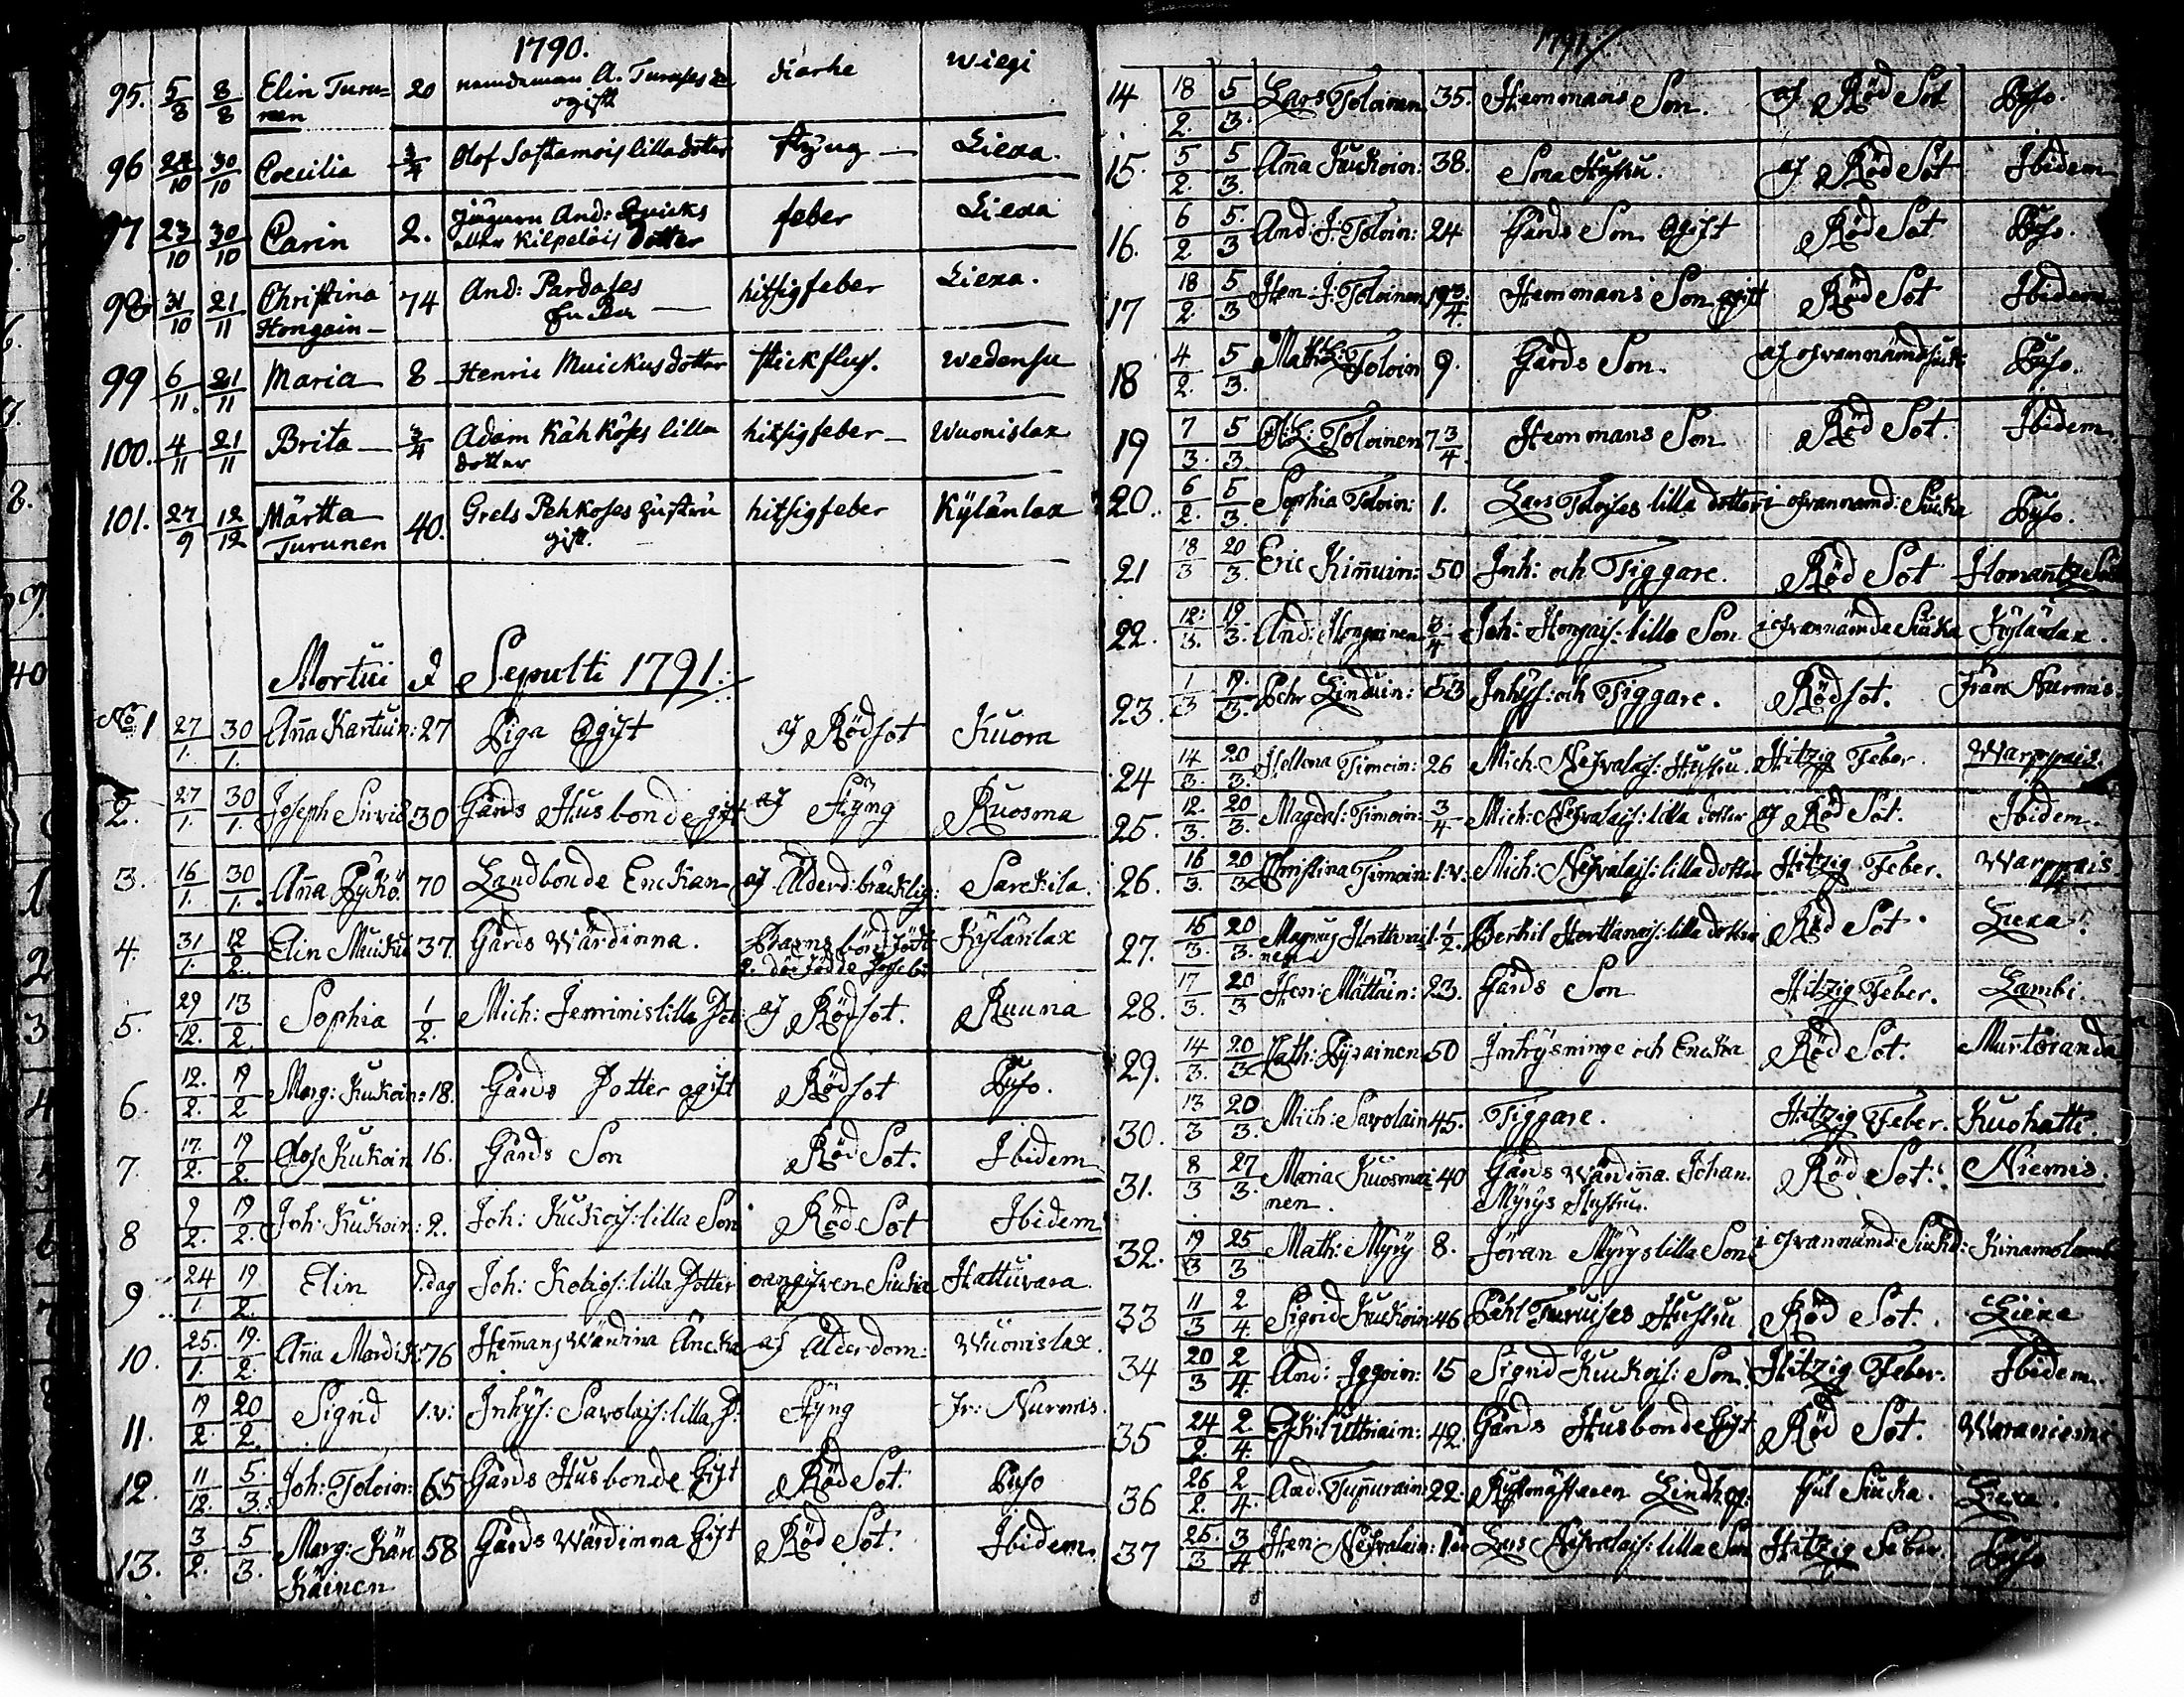 1790.
95. 5/8 8/8 Elin Turu= nen 20 nemdeman A. Turuses ogift diarhe wiegi
96 24/10 30/10 Coecilia 3/4 Olof lilla dotter styng — Liexa.
97 23/10 30/10 Carin 2. And: Quicks eller Kilpelöis dotter feber Liexa
98 31/10 21/11 Christina Hongain — 74 And: Pardases Enka — hitsigfeber Liexa.
99 6/11 21/11 Maria — 8 — Henric Muickus dotter stickflus. wedensu
100. 4/11 21/11 Brita — 3/4 Adam Kähköses lilla dotter hitsigfeber — Wuonislax
101. 27/9 12/12 Märtta Turunen 40. Grels Pehkoses hustru gift. hitsigfeber Kylänlax
Mortui & Sepulti 1791:
No 1 27/1. 30/1. Aña Kartuin: 27 Piga Ogift af Rödsot Kuora
2. 27/1. 30/1. Joseph Sirviö 30 Gårds Husbonde gift af Styng Ruosma
3. 16/1. 30/1. Aña Pyykö. 70 Landbonde Enckan af Ålderd: bräcklig: Sarckila.
4. 31/1. 12/2. Elin Muiku 37. Gårds Wärdinna. Barns börd Kylänlax
5. 29/12. 13/2. Sophia 1/2. Mich: lilla Dot: af Rödsot. Ruuna
6. 12./2. 19/2 Marg: Kukoin: 18. Gårds Dotter ogift Rödsot Puso.
7. 17./2. 19/2. Olof Kukoin 16. Gårds Son Röd Sot. Ibidem
8 9/2. 19/2. Joh: Kukoin: 2. Joh: Kuckois: lilla Son Röd Sot Ibidem
9 24/1. 19/2. Elin 1. dag Joh: lilla Dotter oangifven Siuka Hattuvara.
10. 25./1. 19./2. Aña Mardik: 76 Hemans Wärdina Äncka af Ålderdom: Wuonislax.
11. 19/2. 20/2. Sigrid 1. v: Inhys: Savolais: lilla D: Styng fr: Nurmis.
12. 11/12. 5./3. Joh: Toloin: 65 Gårds Husbonde Gift Röd Sot. Puso
13. 3/2. 5/3. Marg: Kän Käinen 58 Gårds Wärdinna Gift Röd Sot. Ibidem.
1791.
14 18/2. 5/3. Lars Toloinen 35. Hemmans Son. af Röd Sot Puso.
15. 5/2. 5/3. Aña Kuckoin: 38. Hustru. af Röd Sot Ibidem
16. 6/2. 5./3 And: J: Toloin: 24 Gårds Son Ogift Röd Sot Puso.
17 18/2. 5/3 Hen: J: Toloinen 19 3/4. Hemmans Son ogift Röd Sot Ibidem
18 4/2. 5/3. Math: L: Toloin 9. Gårds Son. af ofvannämd siuk: Puso.
19 7/3. 5/3. Toloinen 7 3/4. Hemmans Son Röd Sot. Ibidem
20. 6/2. 5/3. Sophia Toloin: 1. Lars Toloises lilla dotter i ofvannamd: Siuka Puso.
21 18/3 20/3. Eric Kiñuin: 50 Inh: och Tiggare. Röd Sot Ilomantz
22. 12:/3. 19./3. And: Hongainen 3/4 Joh: Hongais: lilla Son i ofvannämda Siuka Kylänlax.
23. 1/3 19./3. Pehr Linduin: 53 Inhys: och Tiggare. Rödsot. från Nurmis.
24 14/3. 20/3. Hellena Timoin: 26 Mich. Nefvalais: Hustru. Hitzig Feber. Warppais.
25. 12./3. 20/3. Magdal: Timoin: 3/4 Mich: Nefvalais: lilla dotter af Röd Sot. Ibidem.
26. 16/3. 20/3 Christina Timoin: 1: v. Mich: Nefvalais: lilla dotter Hitzig Feber. Warppais
27. 15/3. 20/3. Magnus nen 1. 1/2. Bertil Horttanais: lilla dotter Röd Sot. Liexa.
28. 17/3. 20/3 Hen: Mättäin: 23. Gårds Son Hitzig Feber. Lambi.
29. 14/3. 20/3 Cath: Pyrainen 50 Inhysninge och Enckia Röd Sot. Murtoranda
30. 13/3 20/3. Mich: Savolain 45. Tiggare. Hitzig Feber. Kuohatti.
31. 8/3 27/3. Maria Kuosmai nen. 40 Gårds Wärdiña. Johan. Myrys Hustru. Röd Sot. Niemis.
32. 19/3 25/3 Math: Myry 8. Jöran Myrys lilla Son i ofvannämd: Siukd: Kinamolambi
33 11/3 2/4. Sigrid Kuckoin: 46 Påhl Turuises Hustru Röd Sot. Liexa
34 20/3 2/4. And: Iggoin: 15 Sigrid Kuckois: Son. Hitzig Feber. Ibidem.
35 24/2. 2/4. Eskil Ultriain: 42. Gårds Husbonde Gift Röd Sot. Waraniemi
36 26/2. 2/4. And. Tuñurain: 22. Lindhof: ful Siuka. Liexa.
37 25./3 3/4 Hen: Nefvalain: Lars Nefvalais: lilla Son Hitzig Feber. Puso